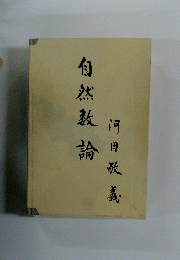 自然数論
河田敬義